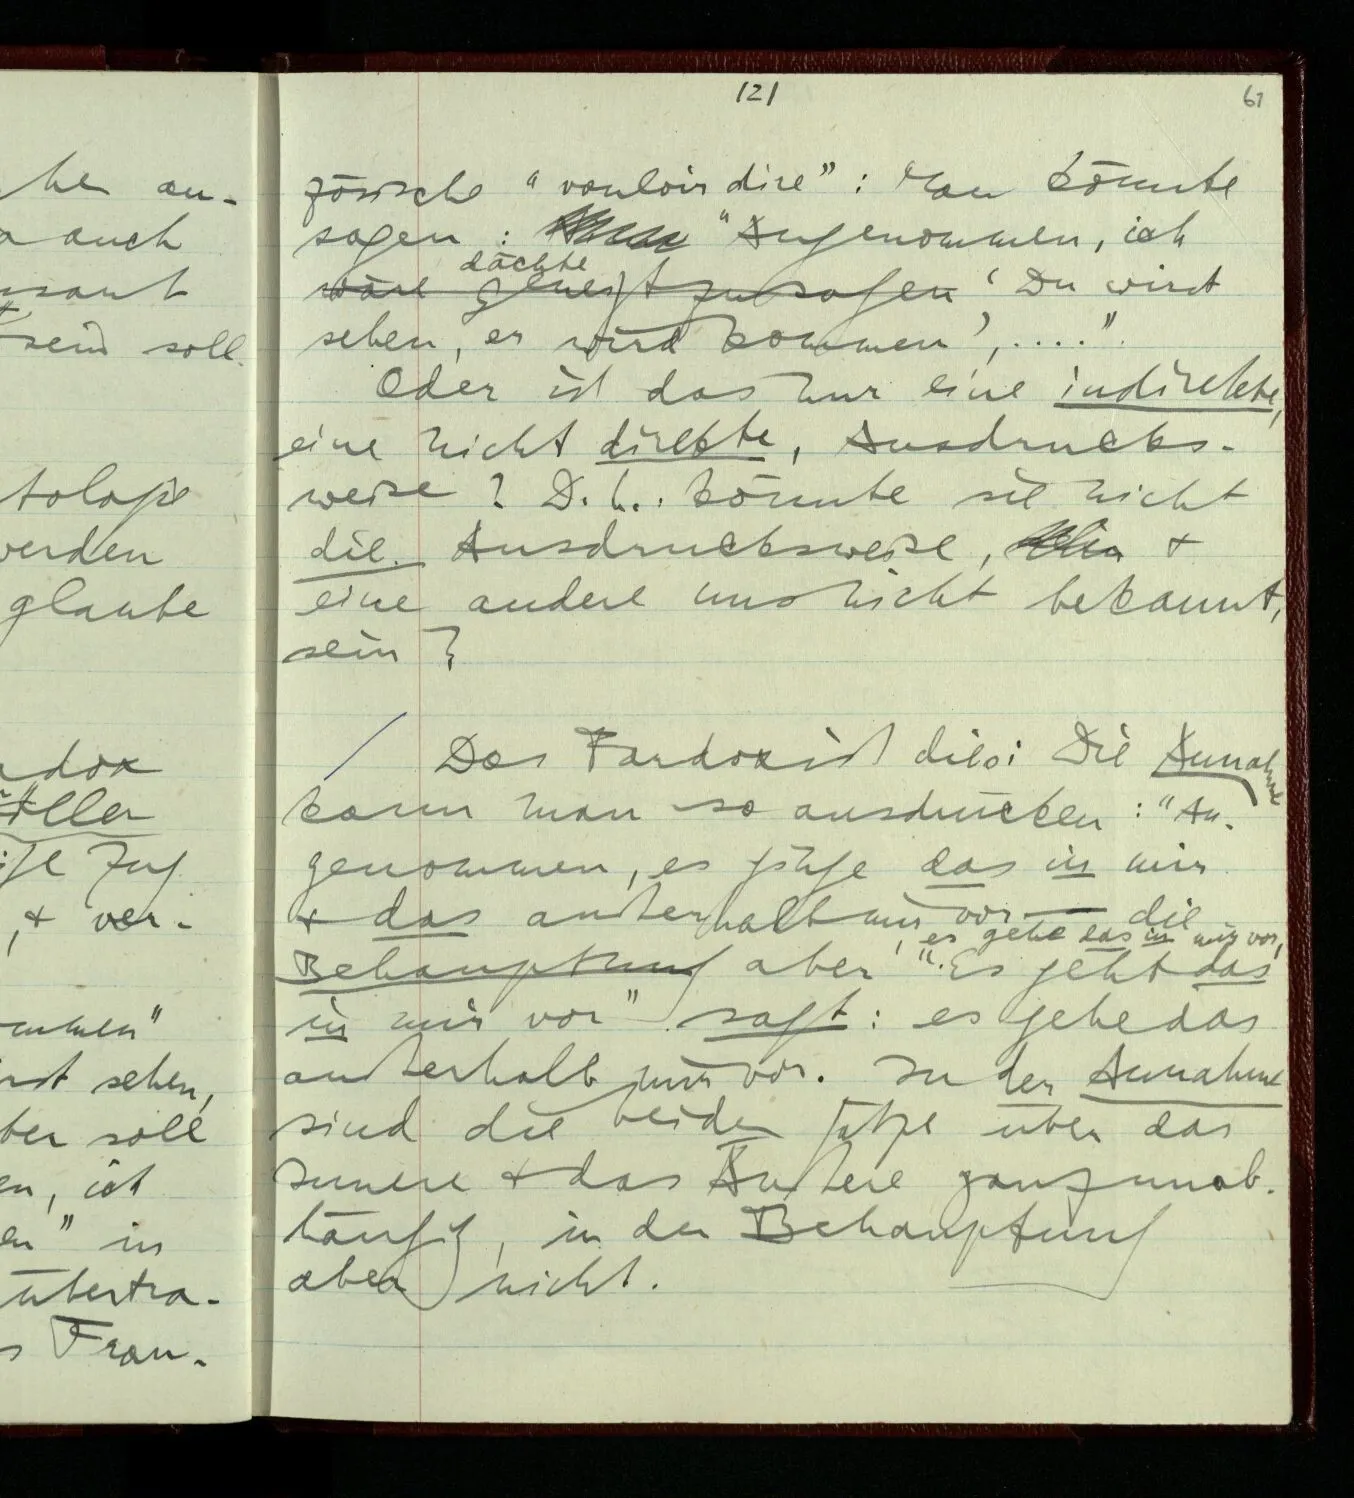 121
61
he an-
auch
sant
sein soll.
tologie
werden
glaube
adox
üller
ige Zug
, & ver-
ommen"
rst sehen,
ber soll
en, ich
en" in
übertra-
s Fran-
zösische "vouloir dire": Man könnte
sagen: "Angenommen, ich
dächte
wäre geneigt zu sagen ‘Du wirst
sehen, er wird kommen’, ....".
Oder ist das nur eine indirekte,
eine nicht direkte, Ausdrucks-
weise? D.h.: könnte sie nicht
die Ausdrucksweise, &
eine andere uns nicht bekannt,
sein?
/ Das Pardox ist dies: Die Annahme
kann man so ausdrücken: "An-
genommen, es ginge das in mir
& das außerhalb mir vor — die
, es gehe das in mir vor,
Behauptung aber "Es geht das
in mir vor" sagt: es gehe das
außerhalb mir vor. In der Annahme
sind die beiden Sätze über das
Innere & das Äußere ganz unab-
hängig, in der Behauptung
aber nicht.